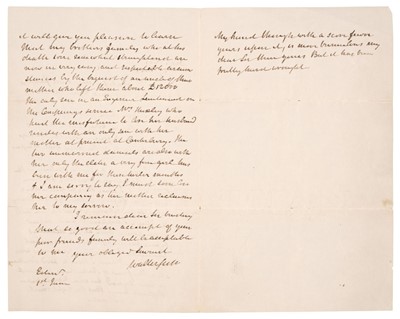 it will give you pleasure to learn
that my brothers family who at his
death were somewhat straightend are
now in very easy and respectable circum
stances by the bequest of an uncle of their
mother who left them about £12000
the only son is an Engineer Lieutenant on
the Companys service Mrs. Huxley who
had the misfortune to lose her husband
resides with an only son with her
mother at present at Canterbury. The
two unmarried damsels are also with
her only the eldest a very fine girl has
been with me for these twelve months
& I am sorry to say I must soon lose
her company as her mother reclaims
her to my sorrow.
I remain dear Sir trusting
that so good an account of your
poor friends family will be acceptable
to me your obliged Servant
Walter Scott
Edinr.
1st June
My hand though with a score fewer
yours upon it, is more tremulous my
dear Sir than yours But it has been
pretty hard wrought